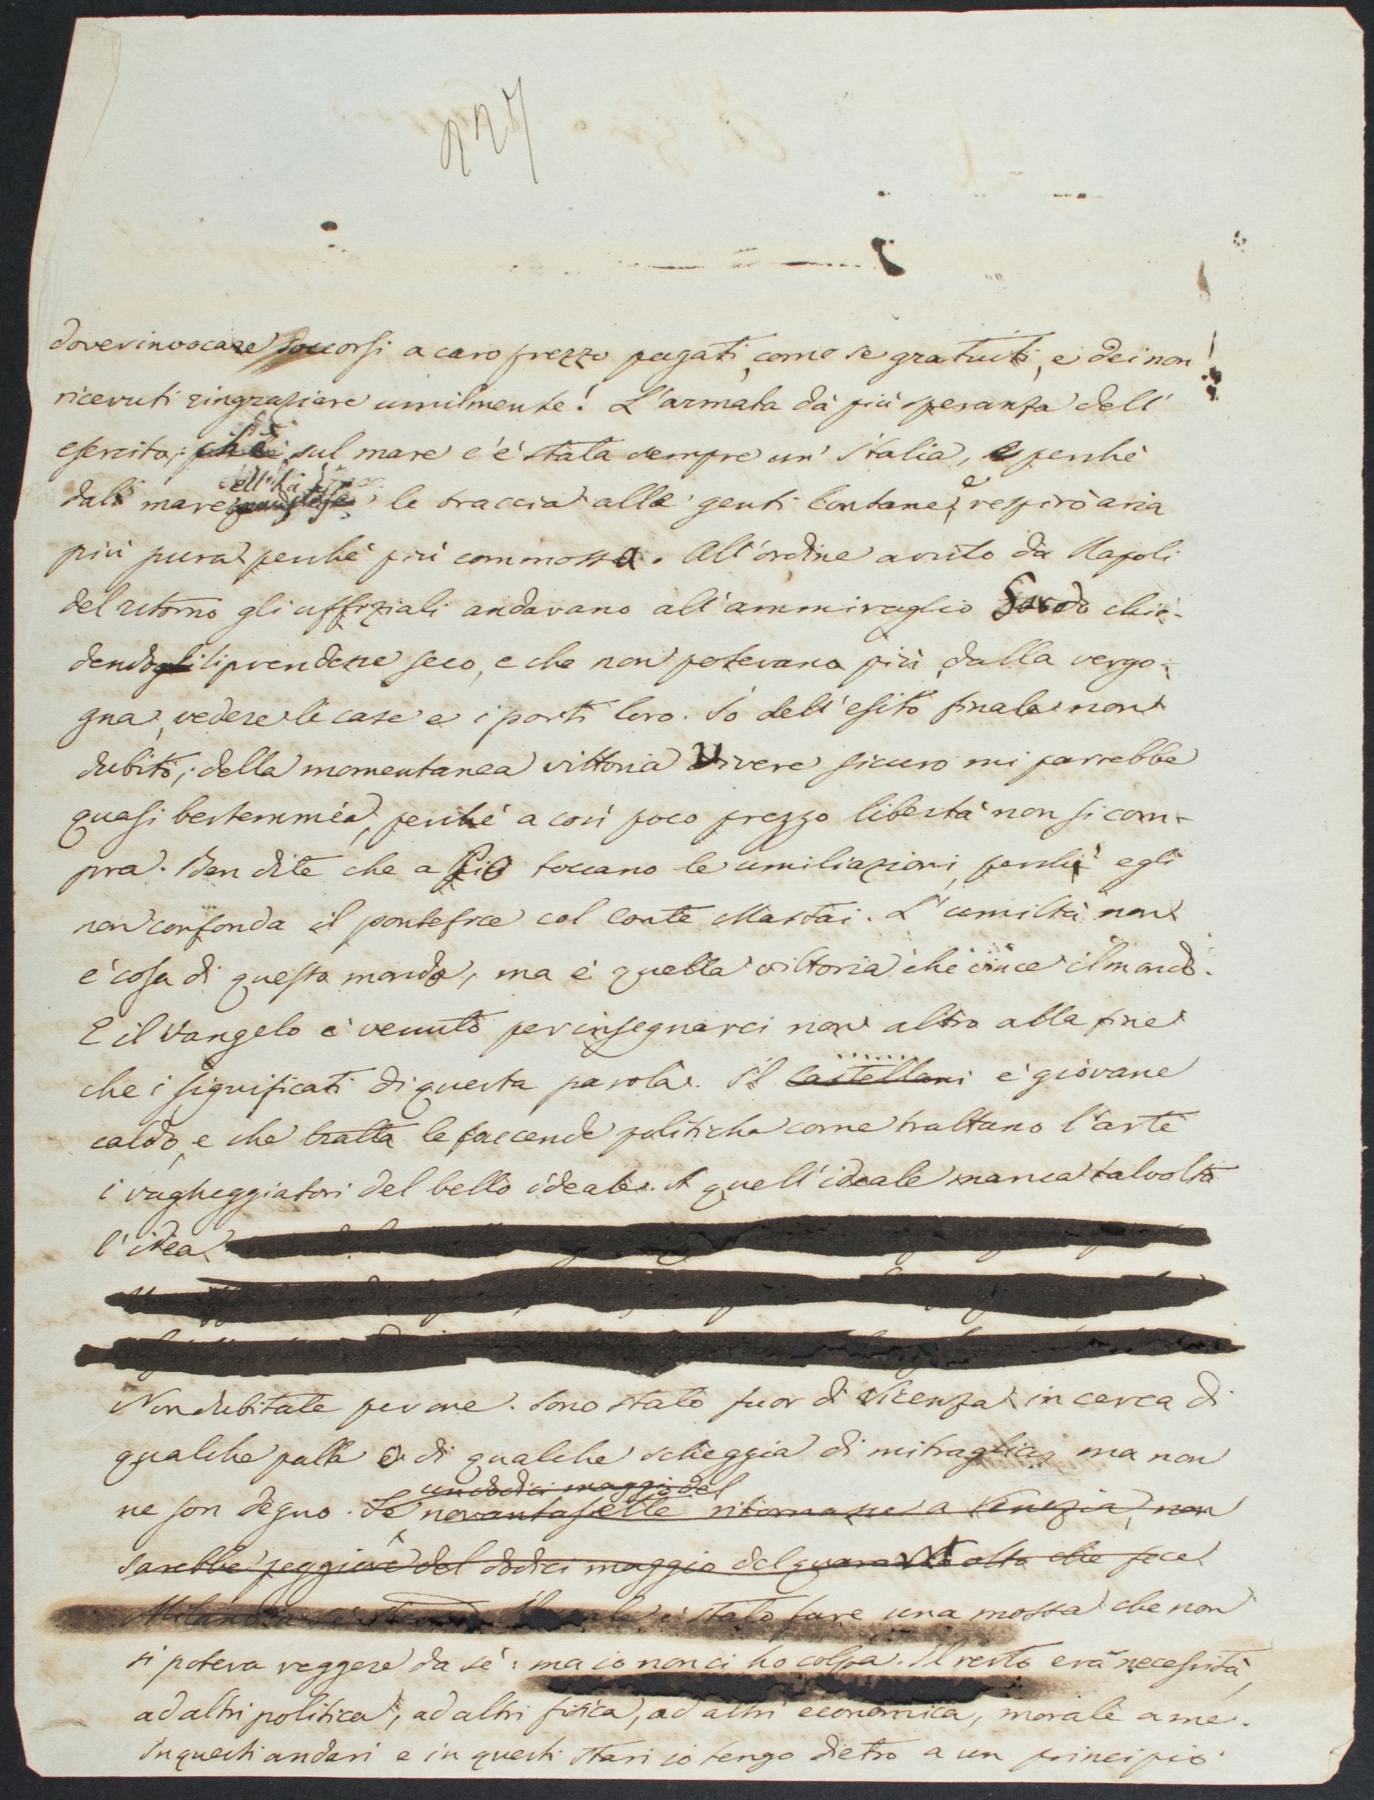 227
dover invocare soccorsi a caro prezzo pagati, come se gratuiti, e dei non
ricevuti ringraziare umilmente! L'armata dà più speranza dell'
esercito; sul mare c'è stata sempre un' Italia, e perchè
dal mare ell'ha le traccia alle genti lontane, e respirò aria
più pura perchè più commossa. All'ordine avuto da Napoli
del ritorno gli uffiziali andavano all'ammiraglio Sardo chie-
dendo li prendesse seco, e che non potevano più, dalla vergo-
gna, vedere le case e i porti loro. Io dell'esito finale non
dubito; della momentanea vittoria vivere sicuro mi parrebbe
quasi bestemmia, perchè a così poco prezzo libertà non si com-
pra. Ben dite che a Pio toccano le umiliazioni, perchè egli
non confonda il pontefice col conte Mastai. L'umiltà non
è cosa di questo mondo, ma è quella vittoria che vince il mondo.
E il Vangelo è venuto per insegnarci non altro alla fine
che i significati di questa parola. Il Castellani è giovane
caldo, e che tratta le faccende politiche come trattano l'arte
i vagheggiatori del bello ideale. A quell'ideale manca talvolta
l'idea
Non dubitate per me. Sono stato fuor di Vicenza in cerca di
qualche palla o di qualche scheggia di mitraglia, ma non
un dodici maggio del
ne son degno. Se novantasette ritornasse a Venezia, non
sarebbe peggiore del dodici maggio del quarantotto che fece
Milano è stato fare una mossa che non
si poteva reggere da sè: ma io non ci ho colpa. Il resto era necessità,
ad altri politica, ad altri fisica, ad altri economica, morale a me.
In questi andari e in questi stari io tengo dietro a un principio